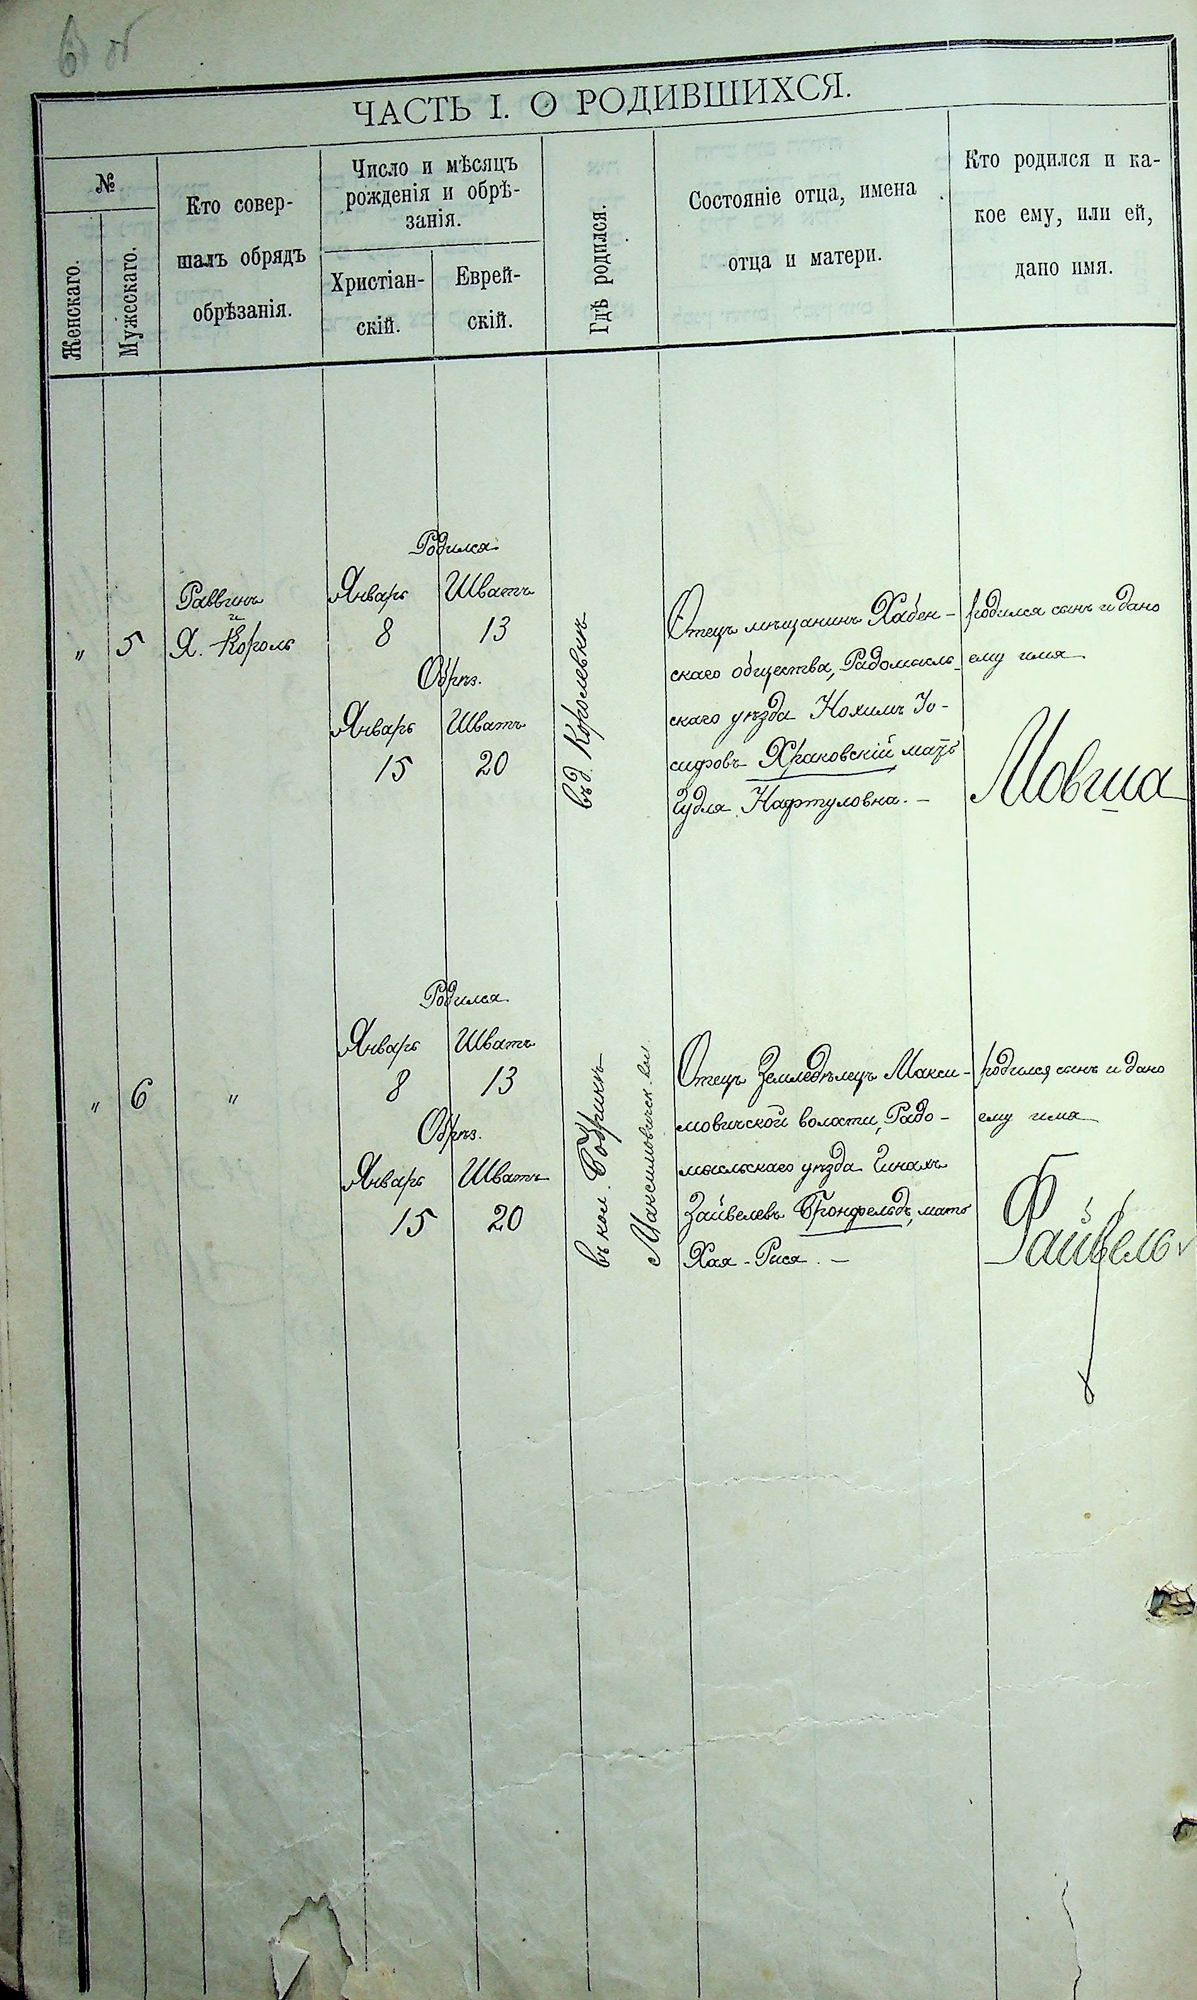 6 об
ЧАСТЬ I. О РОДИВШИХСЯ.
№
Женскаго.
Мужескаго.
Кто совер-
шалъ обрядъ
обрѣзанія.
Число и мѣсяцъ
рожденія и обрѣ-
занія.
Христіан-
скій.
Еврей-
скій.
Гдѣ родился.
Состояніе отца, имена
отца и матери.
Кто родился и ка-
кое ему, или ей,
дано имя.
" 5
Раввинъ
и
Я. Король
Родился
Январь Шватъ
8 13
Обрѣз.
Январь Шватъ
15 20
въ д. Королевкѣ
Отецъ мѣщанинъ Хабен-
скаго общества, Радомысль-
скаго уѣзда Нохимъ Іо-
сифовъ Храковскій мать
Гудля Нафтуловна. —
родился сынъ и дано
ему имя
Мовша
" 6
"
Родился
Январь Шватъ
8 13
Обрѣз.
Январь Шватъ
15 20
въ кол. Бобрикѣ
Максимовичск. вол.
Отецъ Земледѣлецъ Макси-
мовичской волости, Радо-
мысльскаго уѣзда
Зайвелевъ Гронфельдъ, мать
Хая-Рися. —
родился сынъ и дано
ему имя
Файвель